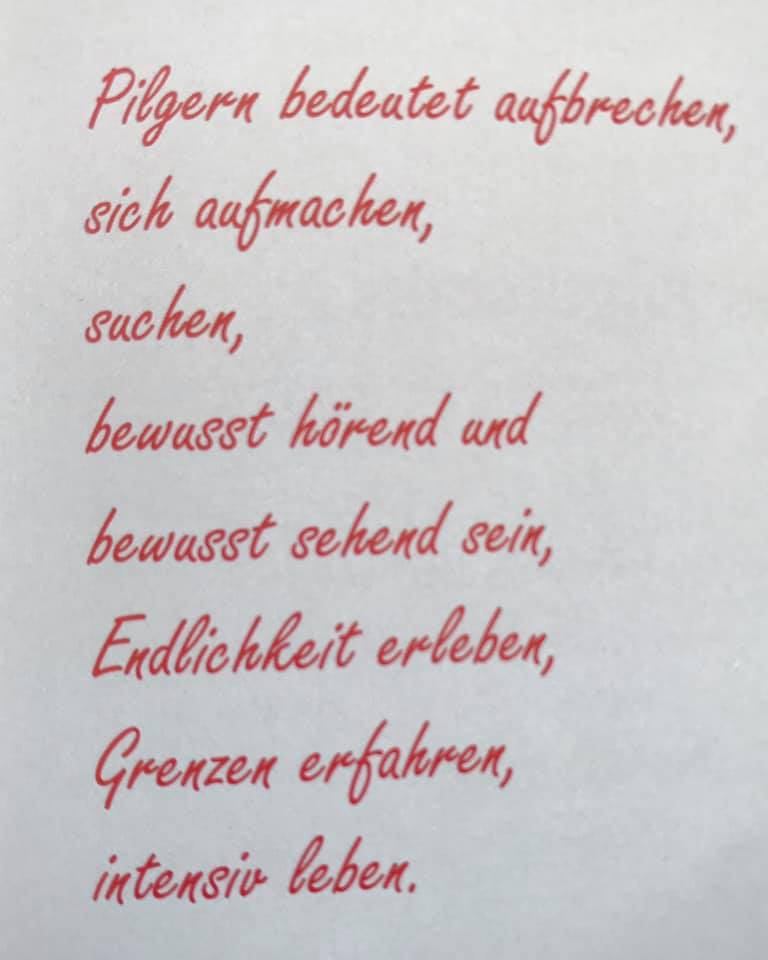 Pilgern bedeutet aufbrechen,
sich aufmachen,
suchen,
bewusst hörend und
bewusst sehend sein,
Endlichkeit erleben,
Grenzen erfahren,
intensiv leben.